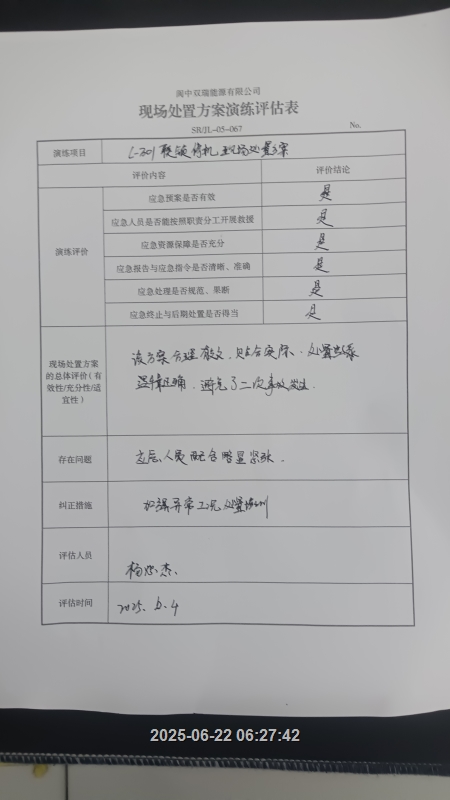 阆中双瑞能源有限公司
现场处置方案演练评估表
SR/JL-03-067
No.
演练项目
C-301联锁停机现场处置方案
评价内容
评价结论
演练评价
应急预案是否有效
是
应急人员是否能按照职责分工开展救援
是
应急资源保障是否充分
是
应急报告与应急指令是否清晰、准确
是
应急处理是否规范、果断
是
应急终止与后期处置是否得当
是
现场处置方案
的总体评价（有
效性/充分性/适
宜性）
该方案合理有效，贴合实际，处置
正确，避免了二次事故发生.
存在问题
应急人员配合略显紧张.
纠正措施
加强异常工况处置培训
评估人员
杨 杰.
评估时间
2025.6.4
2025-06-22 06:27:42